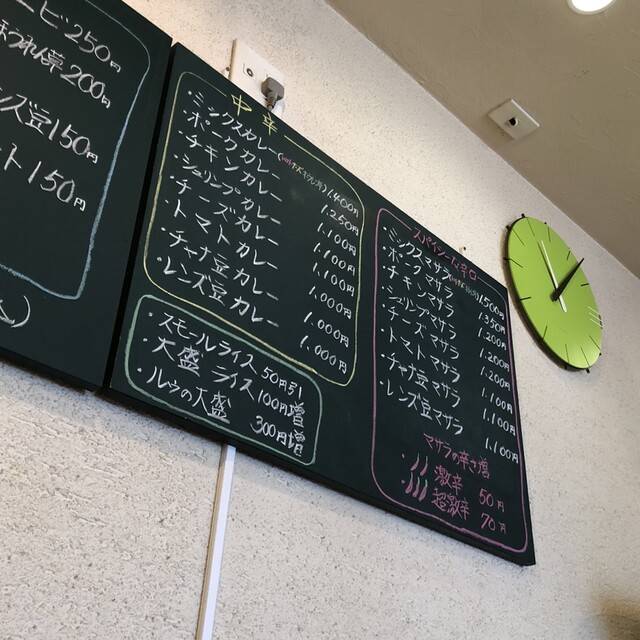 ービ 250円
ほうれん草 200円
ンズ豆 150円
ート 150円
中辛
・ミックスカレー 1,400円
・ポークカレー 1,250円
・チキンカレー 1,100円
・シュリンプカレー 1,100円
・チーズカレー 1,100円
・トマトカレー 1,000円
・チャナ豆カレー 1,000円
・レンズ豆カレー 1,000円
・スモールライス 50円引
・大盛ライス 100円増
・ルウの大盛 300円増
・ミックスマサラ 1,500円
・ポークマサラ 1,350円
・チキンマサラ 1,200円
・シュリンプマサラ 1,200円
・チーズマサラ 1,200円
・トマトマサラ 1,100円
・チャナ豆マサラ 1,100円
・レンズ豆マサラ 1,100円
マサラの辛さ増
・激辛 50円
・超激辛 70円